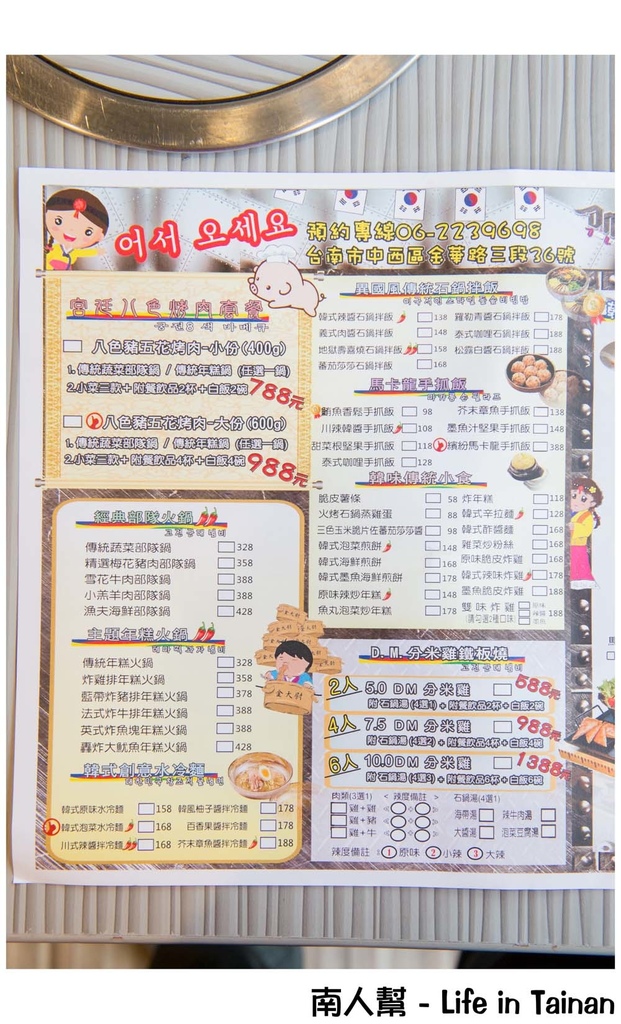 어서 오세요
預約專線06-2239698
台南市中西區金華路三段36號
宮廷八色烤肉套餐
八色豬五花烤肉-小份(400g)
1.傳統蔬菜部隊鍋 / 傳統年糕鍋 (任選一鍋)
2.小菜三款+附餐飲品2杯+白飯2碗 788元
八色豬五花烤肉-大份(600g)
1.傳統蔬菜部隊鍋 / 傳統年糕鍋 (任選一鍋)
2.小菜三款+附餐飲品4杯+白飯4碗 988元
經典部隊火鍋
傳統蔬菜部隊鍋 328
精選梅花豬肉部隊鍋 358
雪花牛肉部隊鍋 388
小羔羊肉部隊鍋 388
漁夫海鮮部隊鍋 428
主題年糕火鍋
傳統年糕火鍋 328
炸雞排年糕火鍋 358
藍帶炸豬排年糕火鍋 378
法式炸牛排年糕火鍋 388
英式炸魚塊年糕火鍋 388
轟炸大魷魚年糕火鍋 428
韓式創意水冷麵
韓式原味水冷麵 158 韓風柚子醬拌冷麵 178
韓式泡菜水冷麵 168 百香果醬拌冷麵 178
川式辣醬拌冷麵 168 芥末章魚醬拌冷麵 188
異國風傳統石鍋拌飯
韓式辣醬石鍋拌飯 138 羅勒青醬石鍋拌飯 178
義式肉醬石鍋拌飯 148 泰式咖哩石鍋拌飯 188
地獄壽喜燒石鍋拌飯 158 松露白醬石鍋拌飯 188
蕃茄莎莎石鍋拌飯 168
馬卡龍手抓飯
鮪魚香鬆手抓飯 98 芥末章魚手抓飯 138
川辣韓醬手抓飯 108 墨魚汁堅果手抓飯 148
甜菜根堅果手抓飯 118 繽紛馬卡龍手抓飯 388
泰式咖哩手抓飯 128
韓味傳統小食
脆皮薯條 58 炸年糕 118
火烤石鍋蒸雞蛋 88 韓式辛拉麵 128
三色玉米脆片佐蕃茄莎莎醬 98 韓式酢醬麵 168
韓式泡菜煎餅 148 雜菜炒粉絲 168
韓式海鮮煎餅 168 原味脆皮炸雞 168
韓式墨魚海鮮煎餅 178 韓式辣味炸雞 188
原味辣炒年糕 148 墨魚脆皮炸雞 188
魚丸泡菜炒年糕 178 雙味炸雞 188
請勾選2種口味
D.M.分米雞鐵板燒
2人 5.0 DM 分米雞 588元
附 石鍋湯 (4選1) + 附餐飲品2杯 + 白飯2碗
4人 7.5 DM 分米雞 988元
附 石鍋湯 (4選2) + 附餐飲品4杯 + 白飯4碗
6人 10.0DM 分米雞 1388元
附 石鍋湯 (4選3) + 附餐飲品6杯 + 白飯6碗
肉類(3選1) < 辣度備註 > 石鍋湯(4選1)
雞+雞 海帶湯 辣牛肉湯
雞+豬 大醬湯 泡菜豆腐湯
雞+牛
辣度備註 : 1 原味 2 小辣 3 大辣
金大尉
南人幫 - Life in Tainan